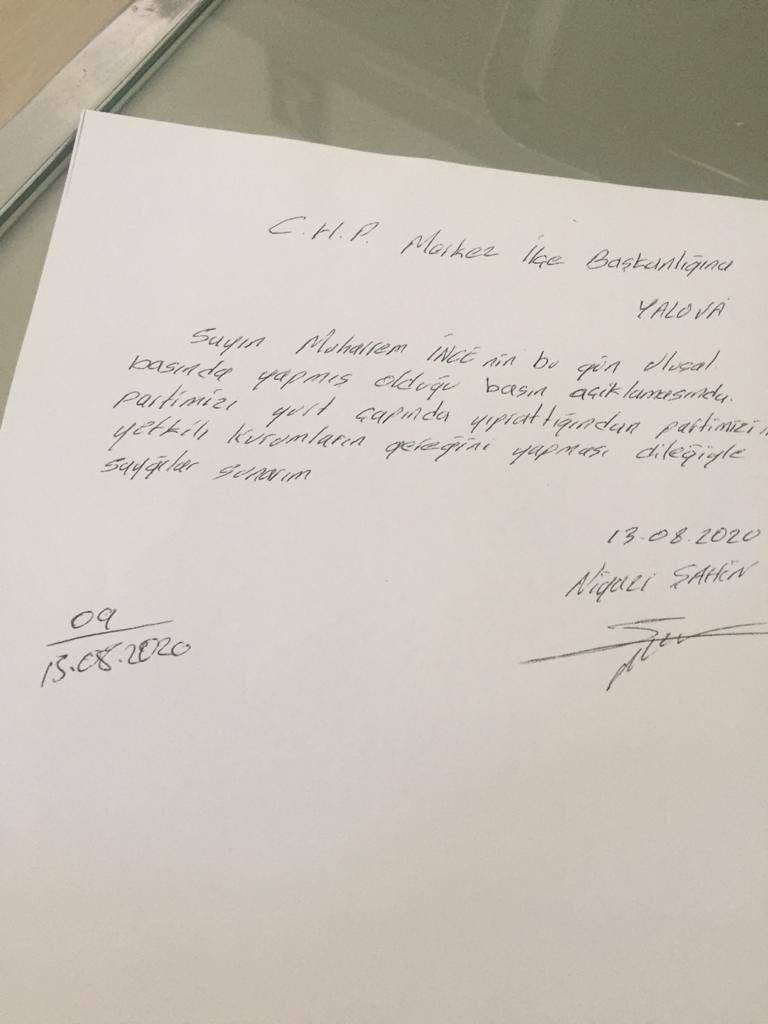 C.H.P. Merkez İlçe Başkanlığına
YALOVA
Sayın Muharrem İNCE'nin bu gün ulusal
basında yapmış olduğu basın açıklamasında
partimizi yurt çapında yıprattığından partimizin
yetkili kurumların gereğini yapması dileğiyle
saygılar sunarım
13.08.2020
Niyazi ŞAHİN
09
13.08.2020